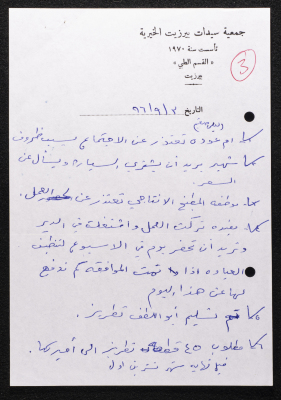 جمعية سيدات بيرزيت الخيرية
تأسست سنة ١٩٧٠
« القسم الطبي »
بيرزيت
3
التاريخ ٩٦/٩/٣
ام عوده تعتذر عن الاجتماع بسبب ظروف
شهير يريد أن يشتري السيارة ويسأل عن
السعر.
موظفة المطبخ الانتاجي تعتذر عن العمل.
تركت العمل واشتغلت في الدير
وتريد أن تحضر يوم في الاسبوع لتنظيف
العياده اذا تمت الموافقه كم ندفع
لها عن هذا اليوم
تم تسليم أبو اللطف تطريز.
مطلوب ٤٥ قطعه تطريز الى أميركا.
شهر تشرين اول